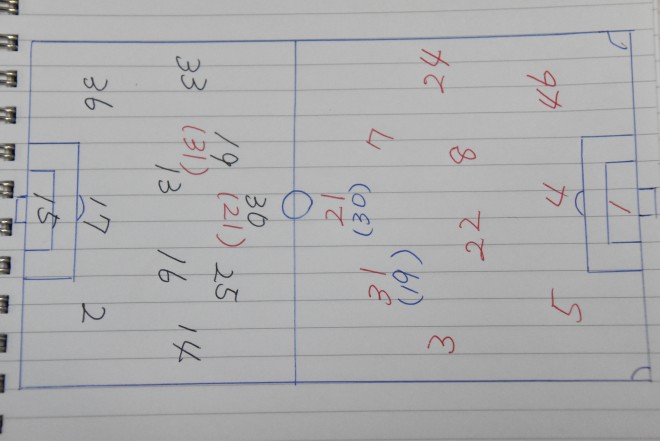 33
36
19
(31)
13
30
(21)
15
17
16
25
2
14
24
46
7
8
21
(30)
4
1
22
31
(19)
5
3